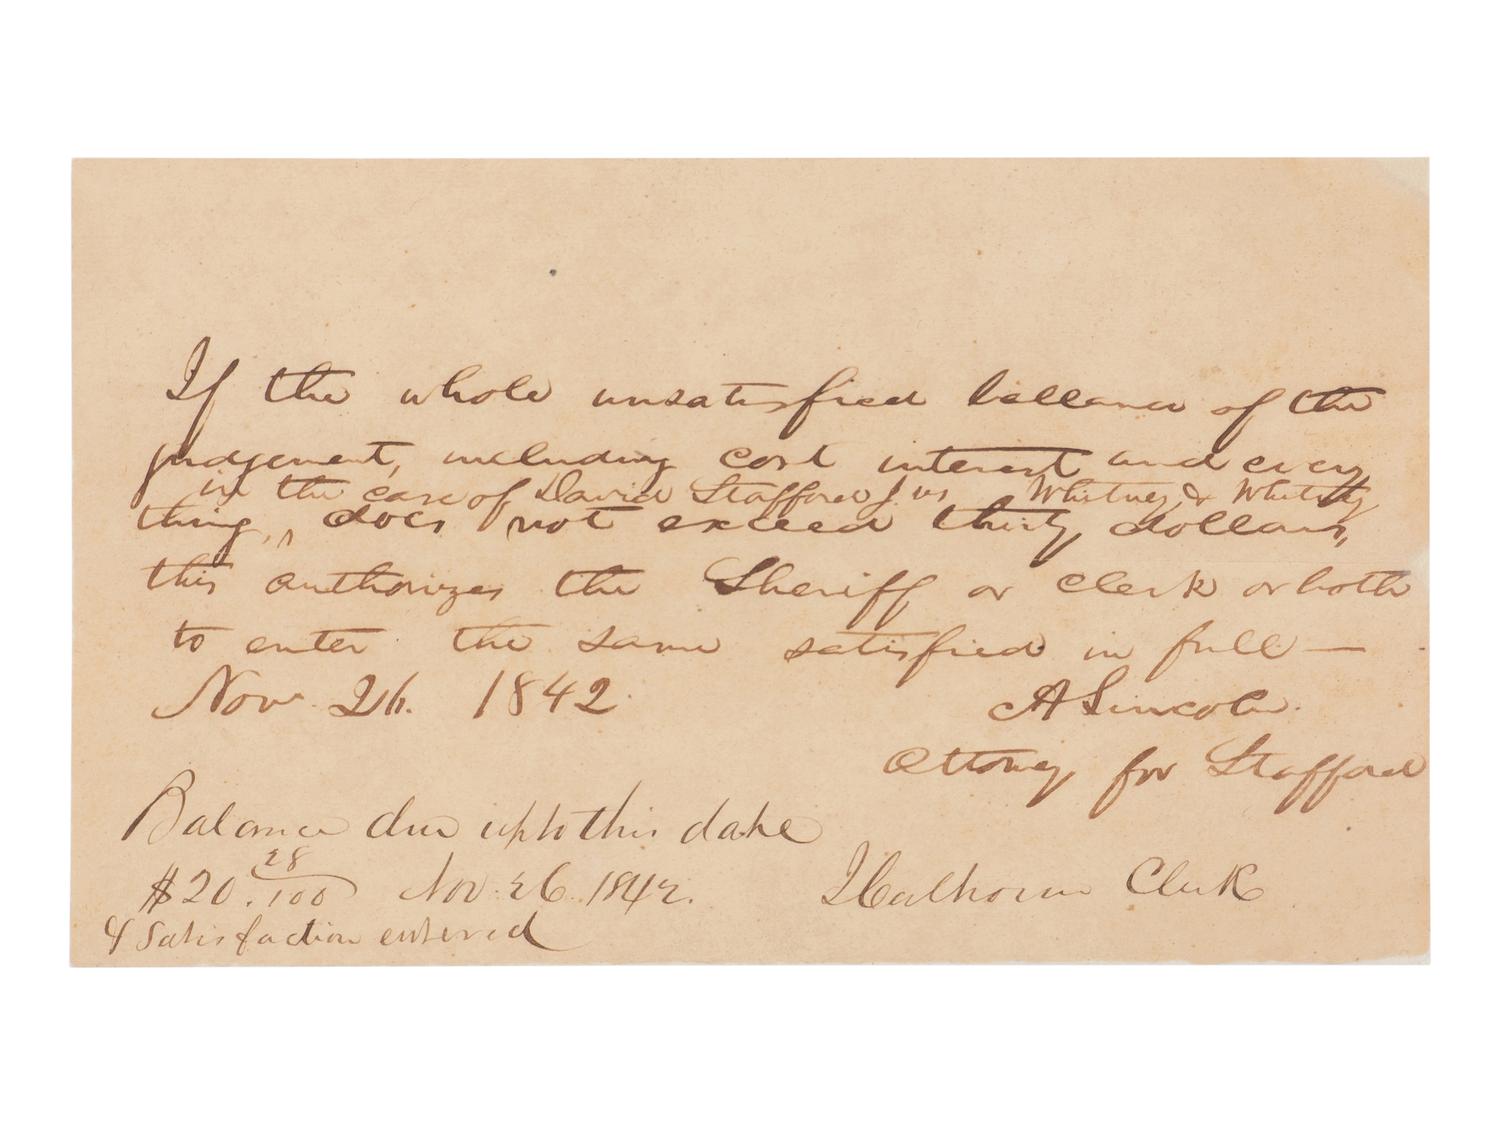 If the whole unsatisfied ballance of the
judgement, including cost interest and every
in the case of David Stafford J. vs Whitney & Whitney
thing, ^ does not exceed thirty dollars,
this authorizes the Sheriff or clerk or both
to enter the same satisfied in full —
Nov. 26. 1842.
A Lincoln.
Attorney for Stafford
Balance due up to this date
$20. 28/100 Nov. 26. 1842.
J Calhoun Clerk
& Satisfaction entered